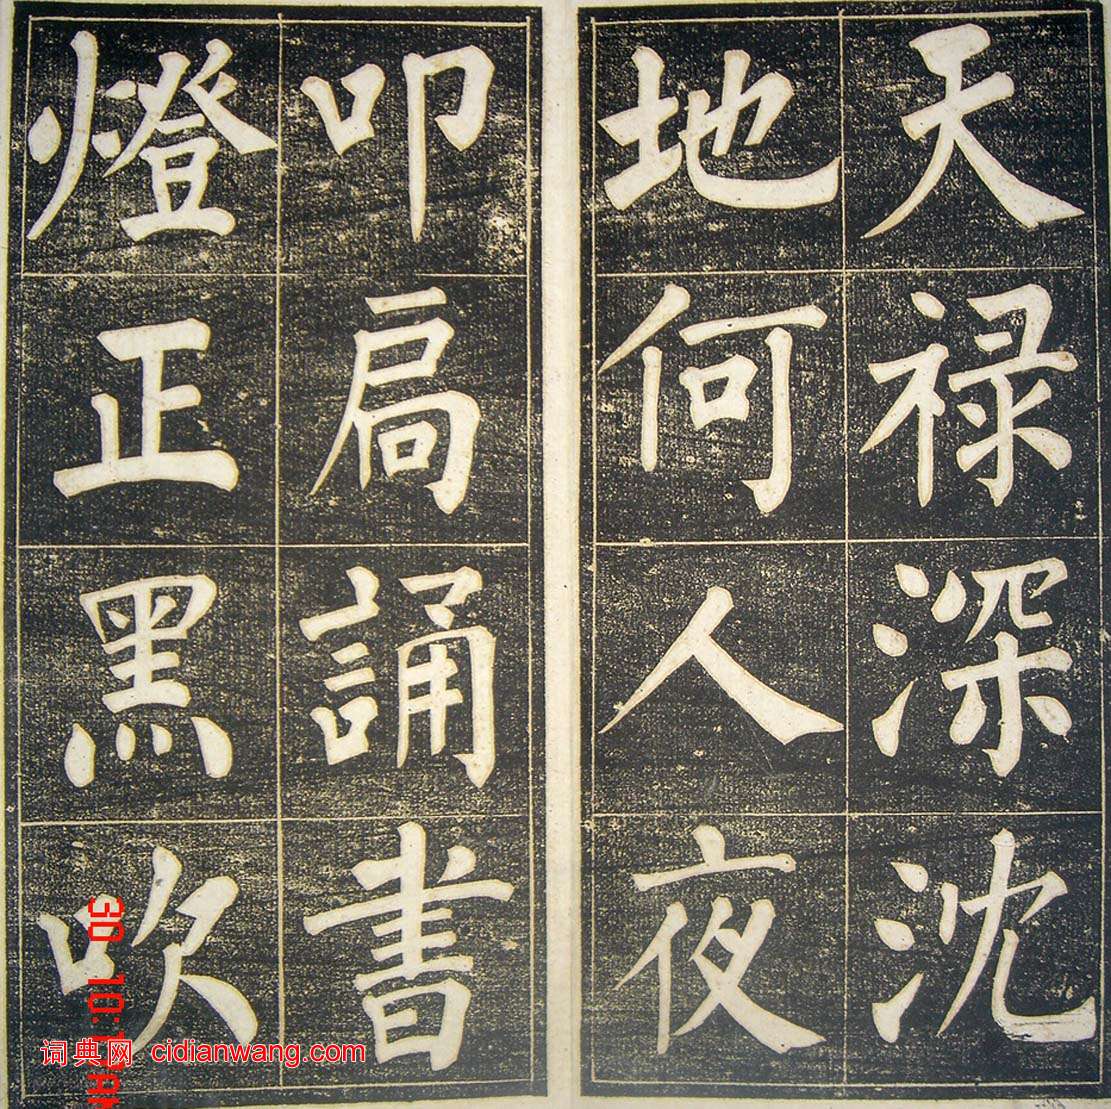 天禄深沈
地何人夜
叩扃誦書
燈正黑吹
30
词典网 cidianwang.com